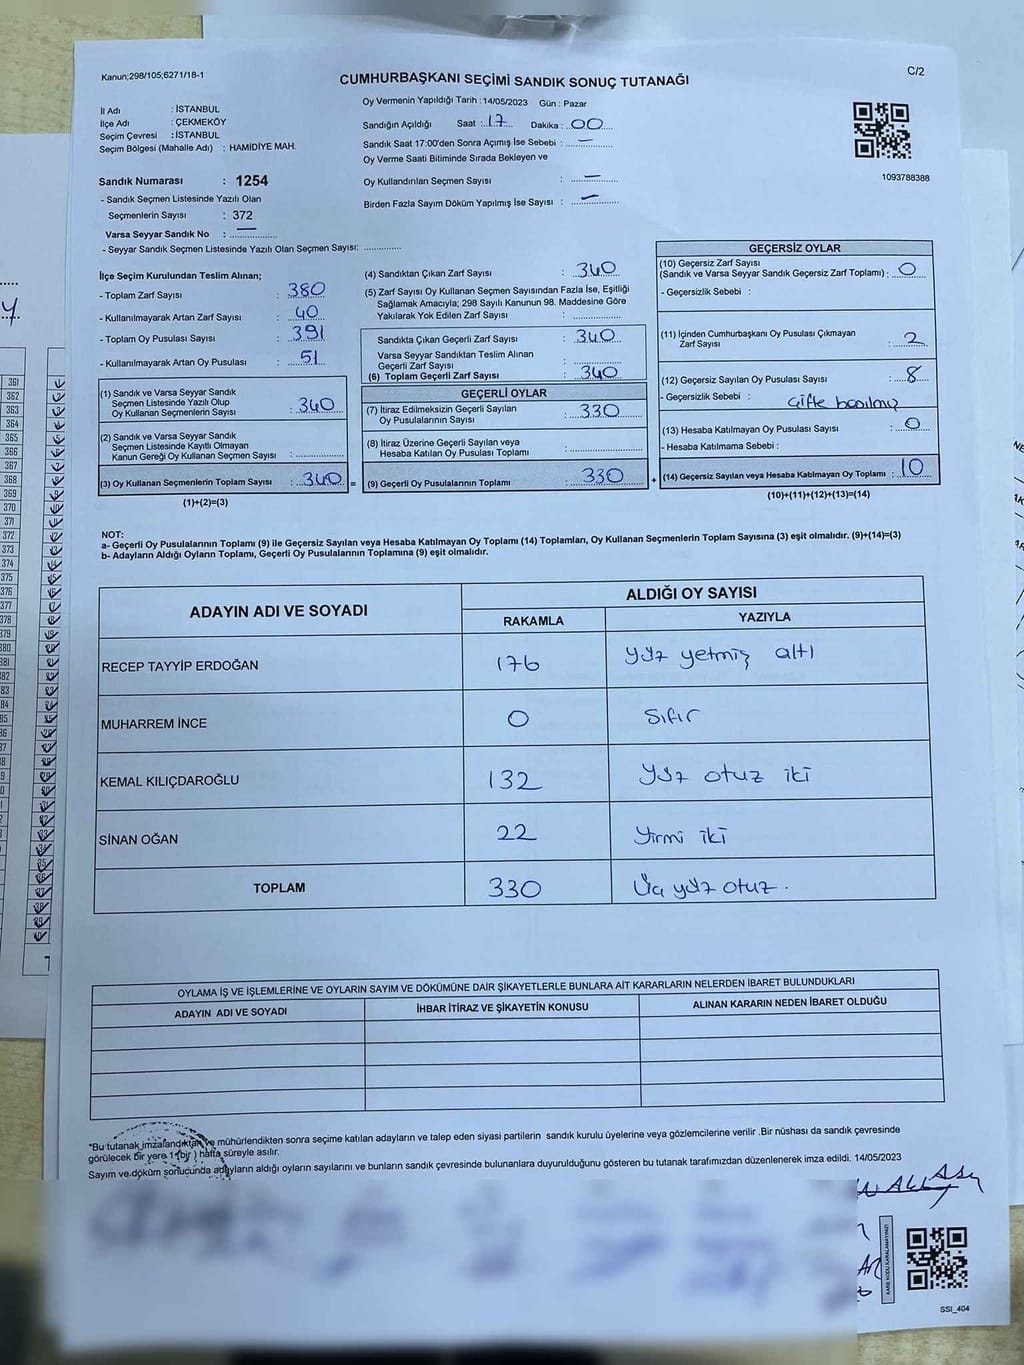 Kanun;298/105;6271/18-1
C/2
CUMHURBAŞKANI SEÇİMİ SANDIK SONUÇ TUTANAĞI
Oy Vermenin Yapıldığı Tarih : 14/05/2023 Gün : Pazar
İl Adı : İSTANBUL
İlçe Adı : ÇEKMEKÖY
Seçim Çevresi : İSTANBUL
Seçim Bölgesi (Mahalle Adı) : HAMİDİYE MAH.
Sandığın Açıldığı Saat : 17 Dakika : 00
Sandık Saat 17:00'den Sonra Açımış İse Sebebi : —
Oy Verme Saati Bitiminde Sırada Bekleyen ve
Oy Kullandırılan Seçmen Sayısı : —
Birden Fazla Sayım Döküm Yapılmış İse Sayısı : —
1093788388
Sandık Numarası : 1254
- Sandık Seçmen Listesinde Yazılı Olan
Seçmenlerin Sayısı : 372
Varsa Seyyar Sandık No : —
- Seyyar Sandık Seçmen Listesinde Yazılı Olan Seçmen Sayısı: ............
İlçe Seçim Kurulundan Teslim Alınan;
- Toplam Zarf Sayısı : 380
- Kullanılmayarak Artan Zarf Sayısı : 40
- Toplam Oy Pusulası Sayısı : 391
- Kullanılmayarak Artan Oy Pusulası : 51
(1) Sandık ve Varsa Seyyar Sandık
Seçmen Listesinde Yazılı Olup
Oy Kullanan Seçmenlerin Sayısı : 340
(2) Sandık ve Varsa Seyyar Sandık
Seçmen Listesinde Kayıtlı Olmayan
Kanun Gereği Oy Kullanan Seçmen Sayısı : ............
(3) Oy Kullanan Seçmenlerin Toplam Sayısı : 340 =
(1)+(2)=(3)
(4) Sandıktan Çıkan Zarf Sayısı : 340
(5) Zarf Sayısı Oy Kullanan Seçmen Sayısından Fazla İse, Eşitliği
Sağlamak Amacıyla; 298 Sayılı Kanunun 98. Maddesine Göre
Yakılarak Yok Edilen Zarf Sayısı : ............
Sandıkta Çıkan Geçerli Zarf Sayısı : 340
Varsa Seyyar Sandıktan Teslim Alınan
Geçerli Zarf Sayısı : ............
(6) Toplam Geçerli Zarf Sayısı : 340
GEÇERLİ OYLAR
(7) İtiraz Edilmeksizin Geçerli Sayılan
Oy Pusulalarının Sayısı : 330
(8) İtiraz Üzerine Geçerli Sayılan veya
Hesaba Katılan Oy Pusulası Toplamı : ............
(9) Geçerli Oy Pusulalarının Toplamı : 330 +
GEÇERSİZ OYLAR
(10) Geçersiz Zarf Sayısı
(Sandık ve Varsa Seyyar Sandık Geçersiz Zarf Toplamı) : 0
- Geçersizlik Sebebi :
(11) İçinden Cumhurbaşkanı Oy Pusulası Çıkmayan
Zarf Sayısı : 2
(12) Geçersiz Sayılan Oy Pusulası Sayısı : 8
- Geçersizlik Sebebi : Çifte basılmış
(13) Hesaba Katılmayan Oy Pusulası Sayısı : 0
- Hesaba Katılmama Sebebi :
(14) Geçersiz Sayılan veya Hesaba Katılmayan Oy Toplamı : 10
(10)+(11)+(12)+(13)=(14)
NOT:
a- Geçerli Oy Pusulalarının Toplamı (9) ile Geçersiz Sayılan veya Hesaba Katılmayan Oy Toplamı (14) Toplamları, Oy Kullanan Seçmenlerin Toplam Sayısına (3) eşit olmalıdır. (9)+(14)=(3)
b- Adayların Aldığı Oyların Toplamı, Geçerli Oy Pusulalarının Toplamına (9) eşit olmalıdır.
ADAYIN ADI VE SOYADI
ALDIĞI OY SAYISI
RAKAMLA YAZIYLA
RECEP TAYYİP ERDOĞAN 176 yüz yetmiş altı
MUHARREM İNCE 0 Sıfır
KEMAL KILIÇDAROĞLU 132 Yüz otuz iki
SİNAN OĞAN 22 Yirmi iki
TOPLAM 330 Üç yüz otuz.
OYLAMA İŞ VE İŞLEMLERİNE VE OYLARIN SAYIM VE DÖKÜMÜNE DAİR ŞİKAYETLERLE BUNLARA AİT KARARLARIN NELERDEN İBARET BULUNDUKLARI
ADAYIN ADI VE SOYADI İHBAR İTİRAZ VE ŞİKAYETİN KONUSU ALINAN KARARIN NEDEN İBARET OLDUĞU
*Bu tutanak imzalandıktan ve mühürlendikten sonra seçime katılan adayların ve talep eden siyasi partilerin sandık kurulu üyelerine veya gözlemcilerine verilir .Bir nüshası da sandık çevresinde
görülecek bir yere 1 (bir ) hafta süreyle asılır.
Sayım ve döküm sonucunda adayların aldığı oyların sayılarını ve bunların sandık çevresinde bulunanlara duyurulduğunu gösteren bu tutanak tarafımızdan düzenlenerek imza edildi. 14/05/2023
KARE KODU KARALAMAYINIZ!
SSI_404
361
362
363
364
365
366
367
368
369
370
371
372
373
374
375
376